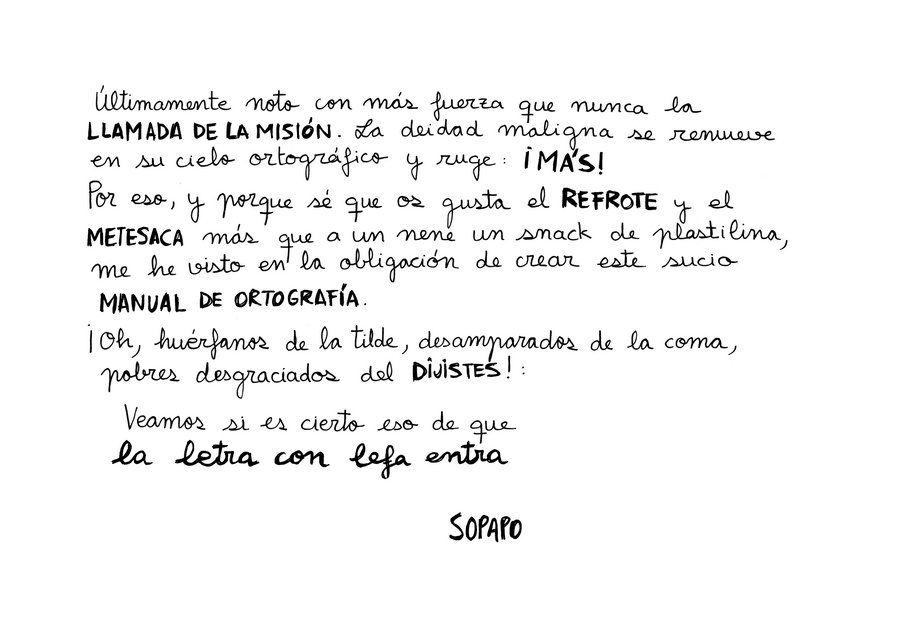 Últimamente noto con más fuerza que nunca la
LLAMADA DE LA MISIÓN. La deidad maligna se remueve
en su cielo ortográfico y ruge: ¡MÁS!
Por eso, y porque sé que os gusta el REFROTE y el
METESACA más que a un nene un snack de plastilina,
me he visto en la obligación de crear este sucio
MANUAL DE ORTOGRAFÍA.
¡Oh, huérfanos de la tilde, desamparados de la coma,
pobres desgraciados del DIJISTES!:
Veamos si es cierto eso de que
la letra con lefa entra
SOPAPO